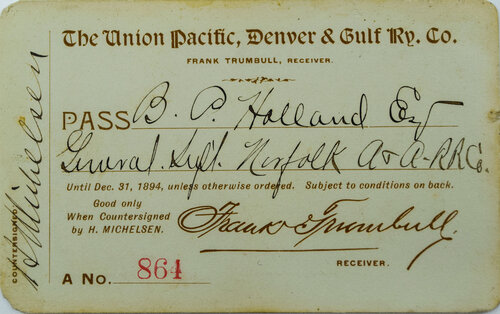 The Union Pacific, Denver & Gulf Ry. Co.
FRANK TRUMBULL, RECEIVER.
PASS B. P. Holland Esq
General Supt. Norfolk A & A - RR Co.
Until Dec. 31, 1894, unless otherwise ordered. Subject to conditions on back.
Good only
When Countersigned
by H. MICHELSEN.
Frank Trumbull.
RECEIVER.
A No. 864
COUNTERSIGNED
H Michelsen